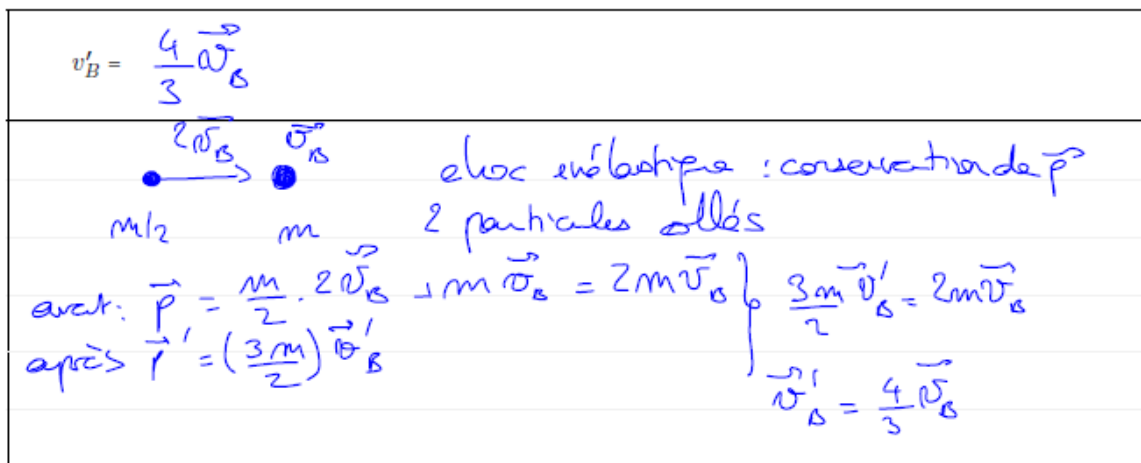 v'_B = 4/3 v⃗_B
2v⃗_B v⃗_B
m/2 m
choc inélastique : conservation de p⃗
2 particules collés
avant: p⃗ = m/2 . 2v⃗_B + m v⃗_B = 2m v⃗_B
après p⃗' = (3m/2) v⃗'_B
3m/2 v⃗'_B = 2m v⃗_B
v⃗'_B = 4/3 v⃗_B